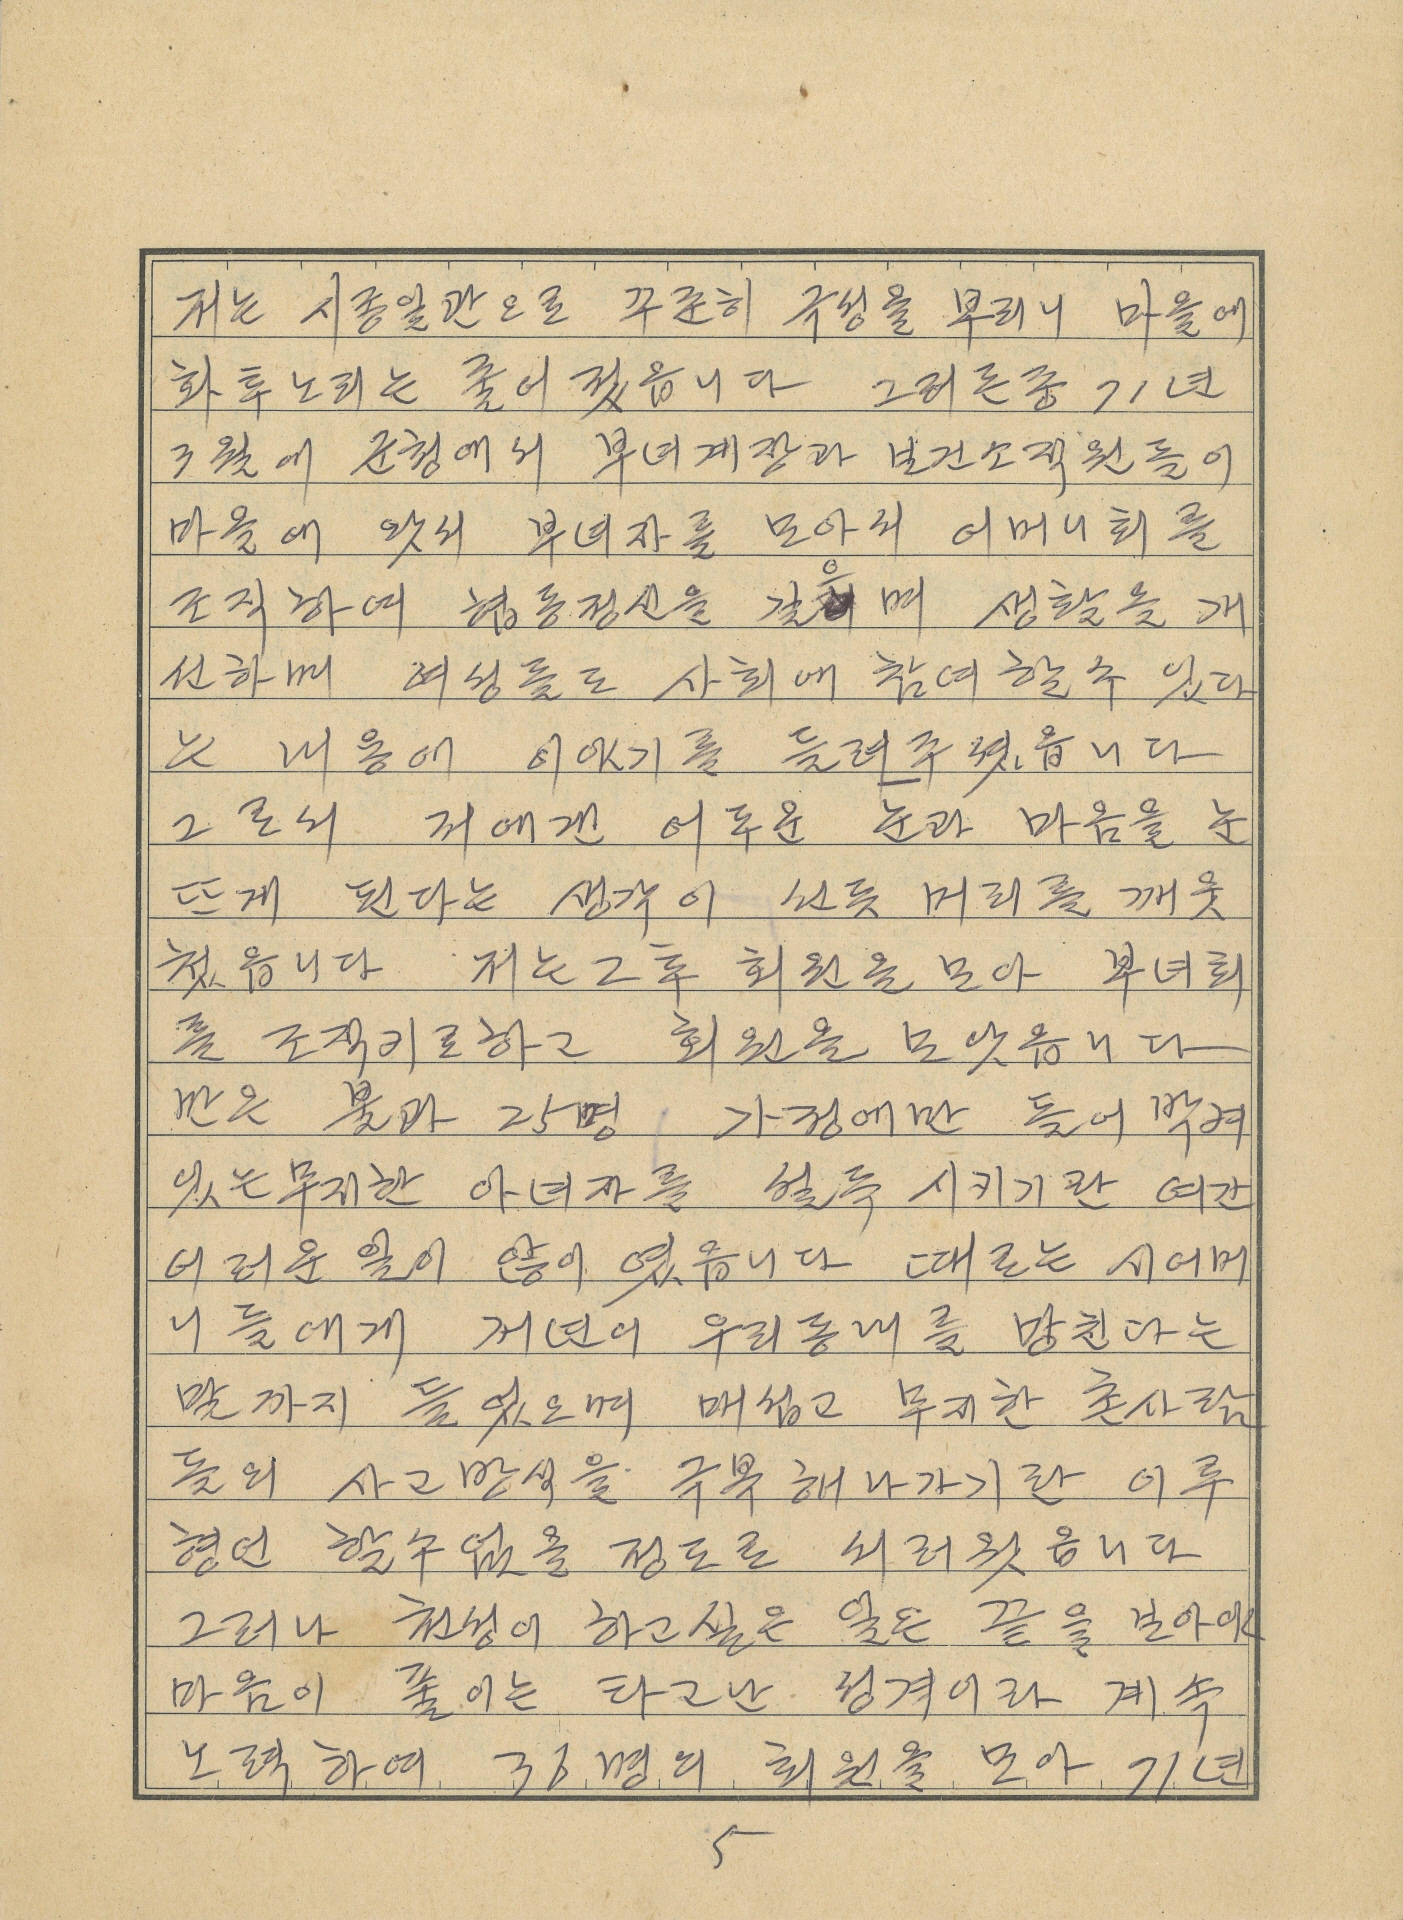 저는 시종일관으로 꾸준히 극성을 부리니 마을에
화투노리는 줄어젔읍니다 그러든중 71년
3월에 군청에서 부녀계장과 보건소직원들이
마을에 왓서 부녀자를 모아서 어머니회를
조직하여 협동정신을 길으며 생활을 개
선하며 여성들도 사회에 참여할수 있다
는 내용에 이야기를 들려주셨읍니다
그로서 저에겐 어두운 눈과 마음을 눈
뜨게 된다는 생각이 선듯 머리를 깨웃
첬읍니다 저는그후 회원을 모아 부녀회
를 조직키로하고 회원을 모앗읍니다
반은 불과 25명 가정에만 들어박혀
있는무지한 아녀자를 설득 시키기란 여간
어러운일이 않이였읍니다 때로는 시어머
니들에게 저년이 우리동내를 망친다는
말까지 들었으며 매섭고 무지한 촌사람
들의 사고방식을 극복해나가기란 이루
형언 할수없을 정도로 서러웟읍니다
그러나 천성이 하고싶은 일은 끝을 보아야
마음이 풀이는 타고난 성격이라 계속
노력하여 36명의 회원을 모아 71년
5